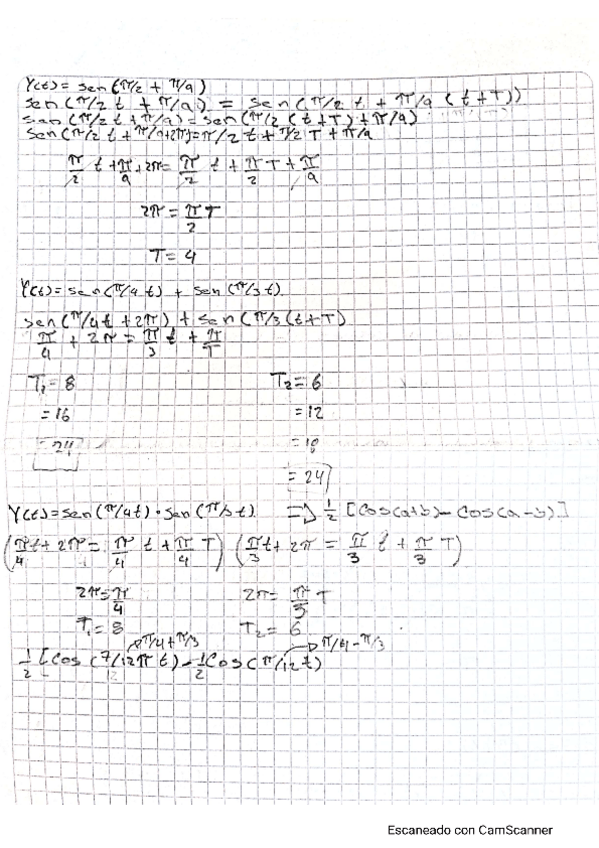 Y(t)= sen(π/2 + π/9)
sen(π/2 t + π/9) = sen(π/2 t + π/9 (t+T))
sen(π/2 t + π/9) = sen(π/2 (t+T) + π/9)
sen(π/2 t + π/9+2π)=π/2 t + π/2 T + π/9
π/2 t + π/9 + 2π = π/2 t + π/2 T + π/9
2π = π/2 T
T = 4
Y(t)= sen(π/4 t) + sen(π/3 t)
sen(π/4t + 2π) + sen(π/3(t+T)
π/4 + 2π = π/3 t + π/T
T₁ = 8 T₂ = 6
= 16 = 12
= 24 = 18
= 24
Y(t)=sen(π/4t) · sen(π/3t) => 1/2 [cos(a+b) - cos(a-b)]
(π/4 t + 2π = π/4 t + π/4 T) (π/3 t + 2π = π/3 t + π/3 T)
2π = π/4 2π = π/3 T
T₁ = 8 T₂ = 6
π/4 + π/3 π/4 - π/3
1/2 [cos (7/12π t) - 1/2 cos(π/12t)
Escaneado con CamScanner